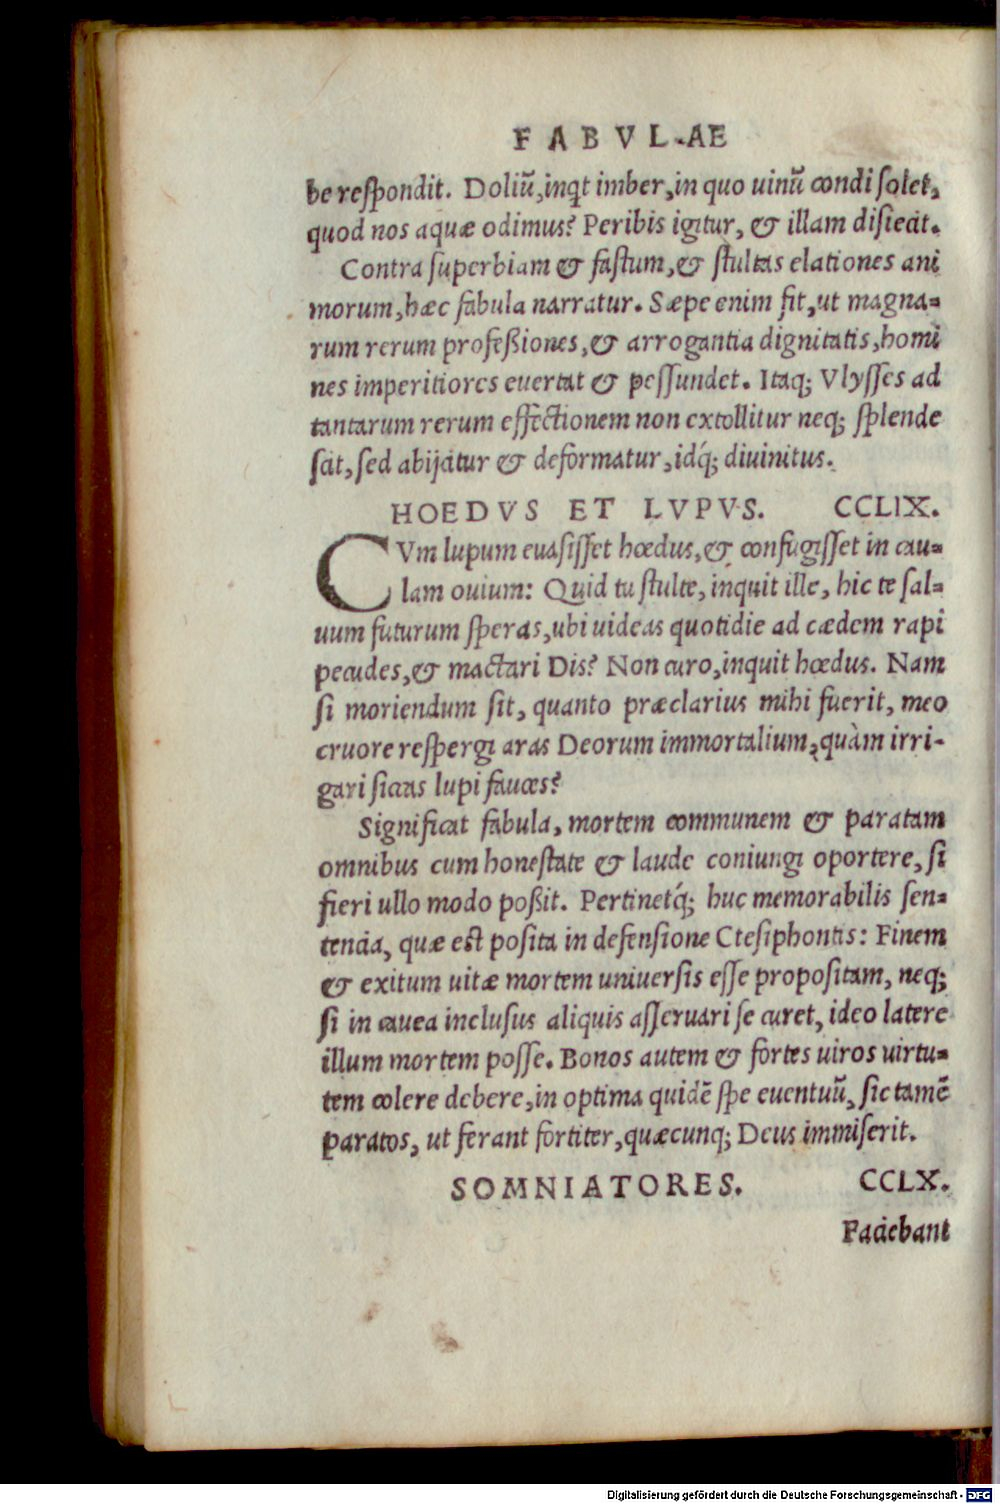 FABVLAE
be respondit. Doliũ, inqt imber, in quo uinũ condi solet,
quod nos aquæ odimus? Peribis igitur, & illam disiecit.
Contra superbiam & fastum, & stultas elationes ani
morum, hæc fabula narratur. Sæpe enim fit, ut magna-
rum rerum profeßiones, & arrogantia dignitatis, homi
nes imperitiores euertat & pessundet. Itaq; Vlysses ad
tantarum rerum effectionem non extollitur neq; splende
scit, sed abijcitur & deformatur, idq́; diuinitus.
HOEDVS ET LVPVS. CCLIX.
CVm lupum euasisset hœdus, & confugisset in cau-
lam ouium: Quid tu stulte, inquit ille, hic te sal-
uum futurum speras, ubi uideas quotidie ad cædem rapi
pecudes, & mactari Dis? Non curo, inquit hœdus. Nam
si moriendum sit, quanto præclarius mihi fuerit, meo
cruore respergi aras Deorum immortalium, quàm irri-
gari siccas lupi fauces?
Significat fabula, mortem communem & paratam
omnibus cum honestate & laude coniungi oportere, si
fieri ullo modo poßit. Pertinetq́; huc memorabilis sen-
tencia, quæ est posita in defensione Ctesiphontis: Finem
& exitum uitæ mortem uniuersis esse propositam, neq;
si in cauea inclusus aliquis asseruari se curet, ideo latere
illum mortem posse. Bonos autem & fortes uiros uirtu-
tem colere debere, in optima quidẽ spe euentuũ, sic tamẽ
paratos, ut ferant fortiter, quæcunq; Deus immiserit.
SOMNIATORES. CCLX.
Faciebant
Digitalisierung gefördert durch die Deutsche Forschungsgemeinschaft - DFG